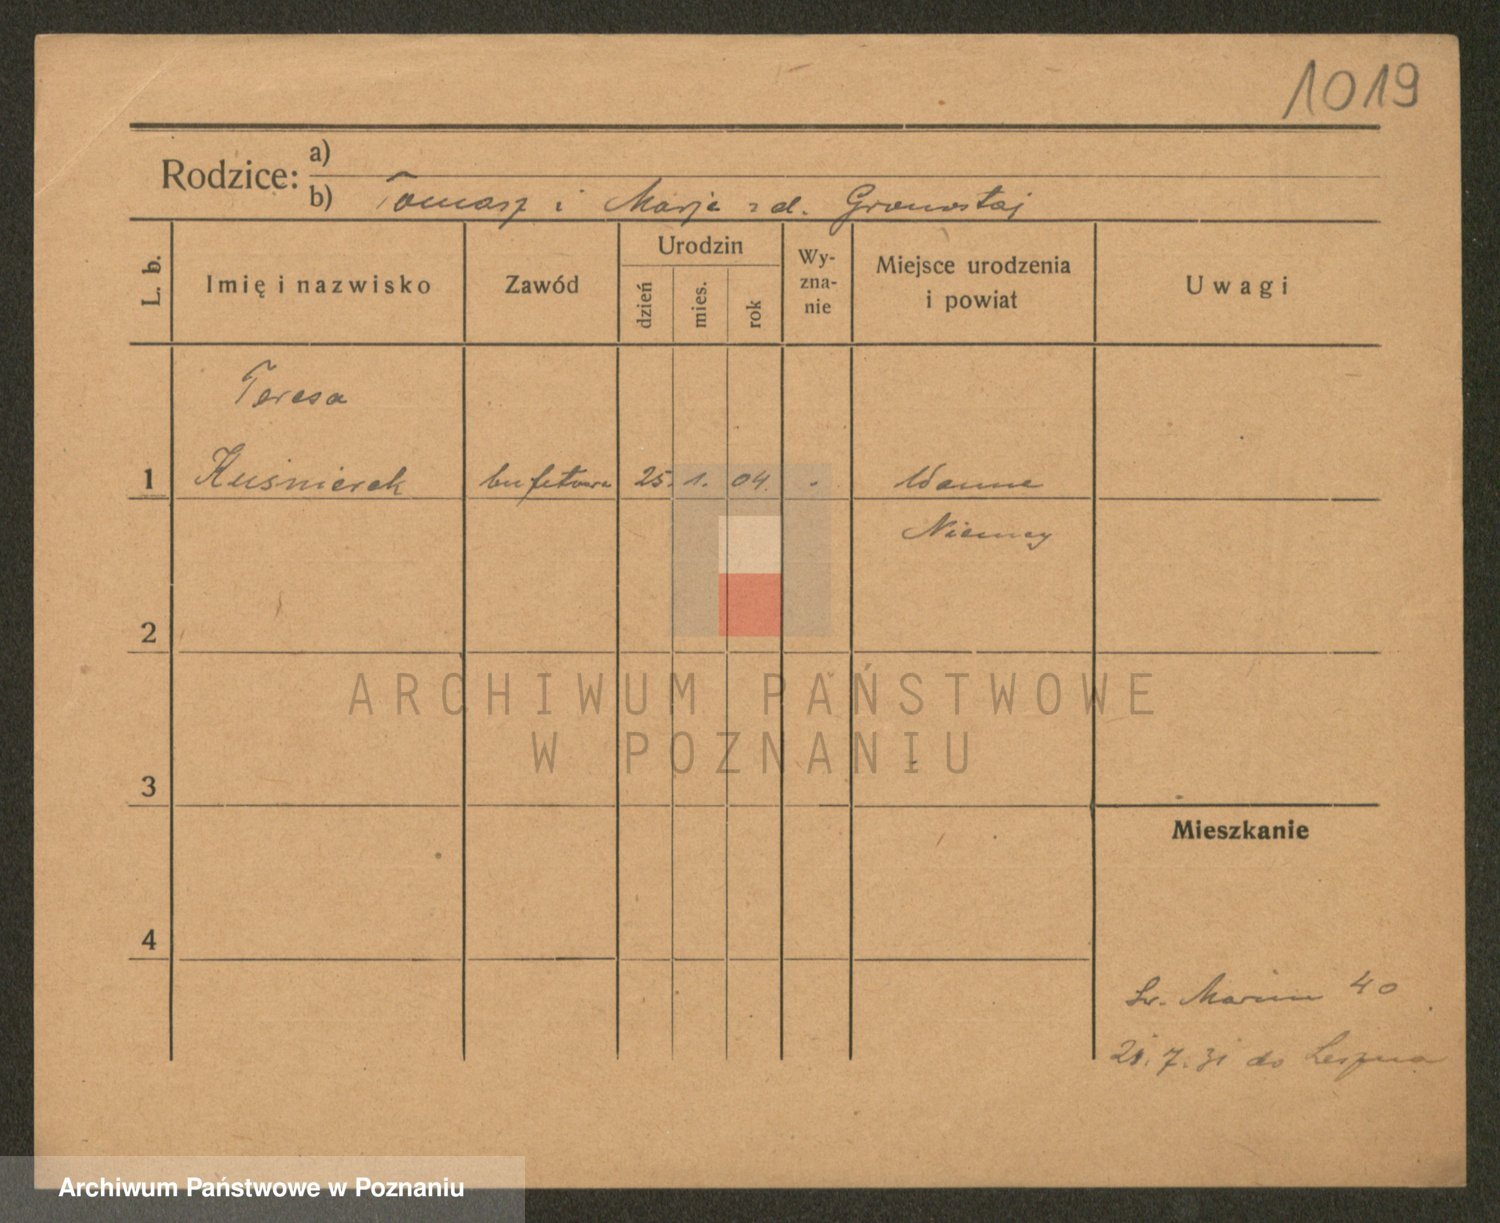 1019
Rodzice: a)
b) Tomasz i Marja z d. Gronostaj
L. b.
Imię i nazwisko
Zawód
Urodzin
dzień
mies.
rok
Wy-
zna-
nie
Miejsce urodzenia
i powiat
Uwagi
Teresa
1 Kuśnierek bufetowa 25. 1. 04. - Wanne
Niemcy
2
ARCHIWUM PAŃSTWOWE
W POZNANIU
3
Mieszkanie
4
Św. Marcin 40
7.31 do Leszna
Archiwum Państwowe w Poznaniu